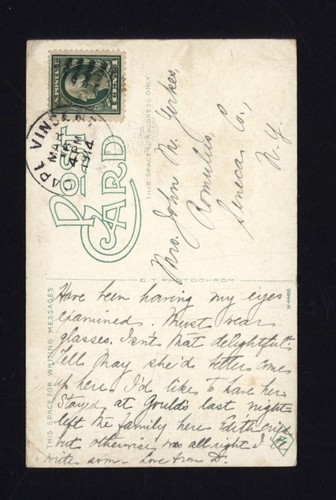 CAPE VINCENT
MA
4 PM
1914
1 CENT 1
POST CARD
THIS SPACE FOR ADDRESS ONLY
Mrs. John N. Yerkes,
Romulus,
Seneca Co.,
N.Y.
THIS SPACE FOR WRITING MESSAGES
Have been having my eyes
examined. Must wear
glasses. Isn't that delightful?
Tell May she'd better come
up here. I'd like to have her
Stayed at Gould's last night
left the family here Edith cried
but otherwise was all right I
write soon. Love from D.